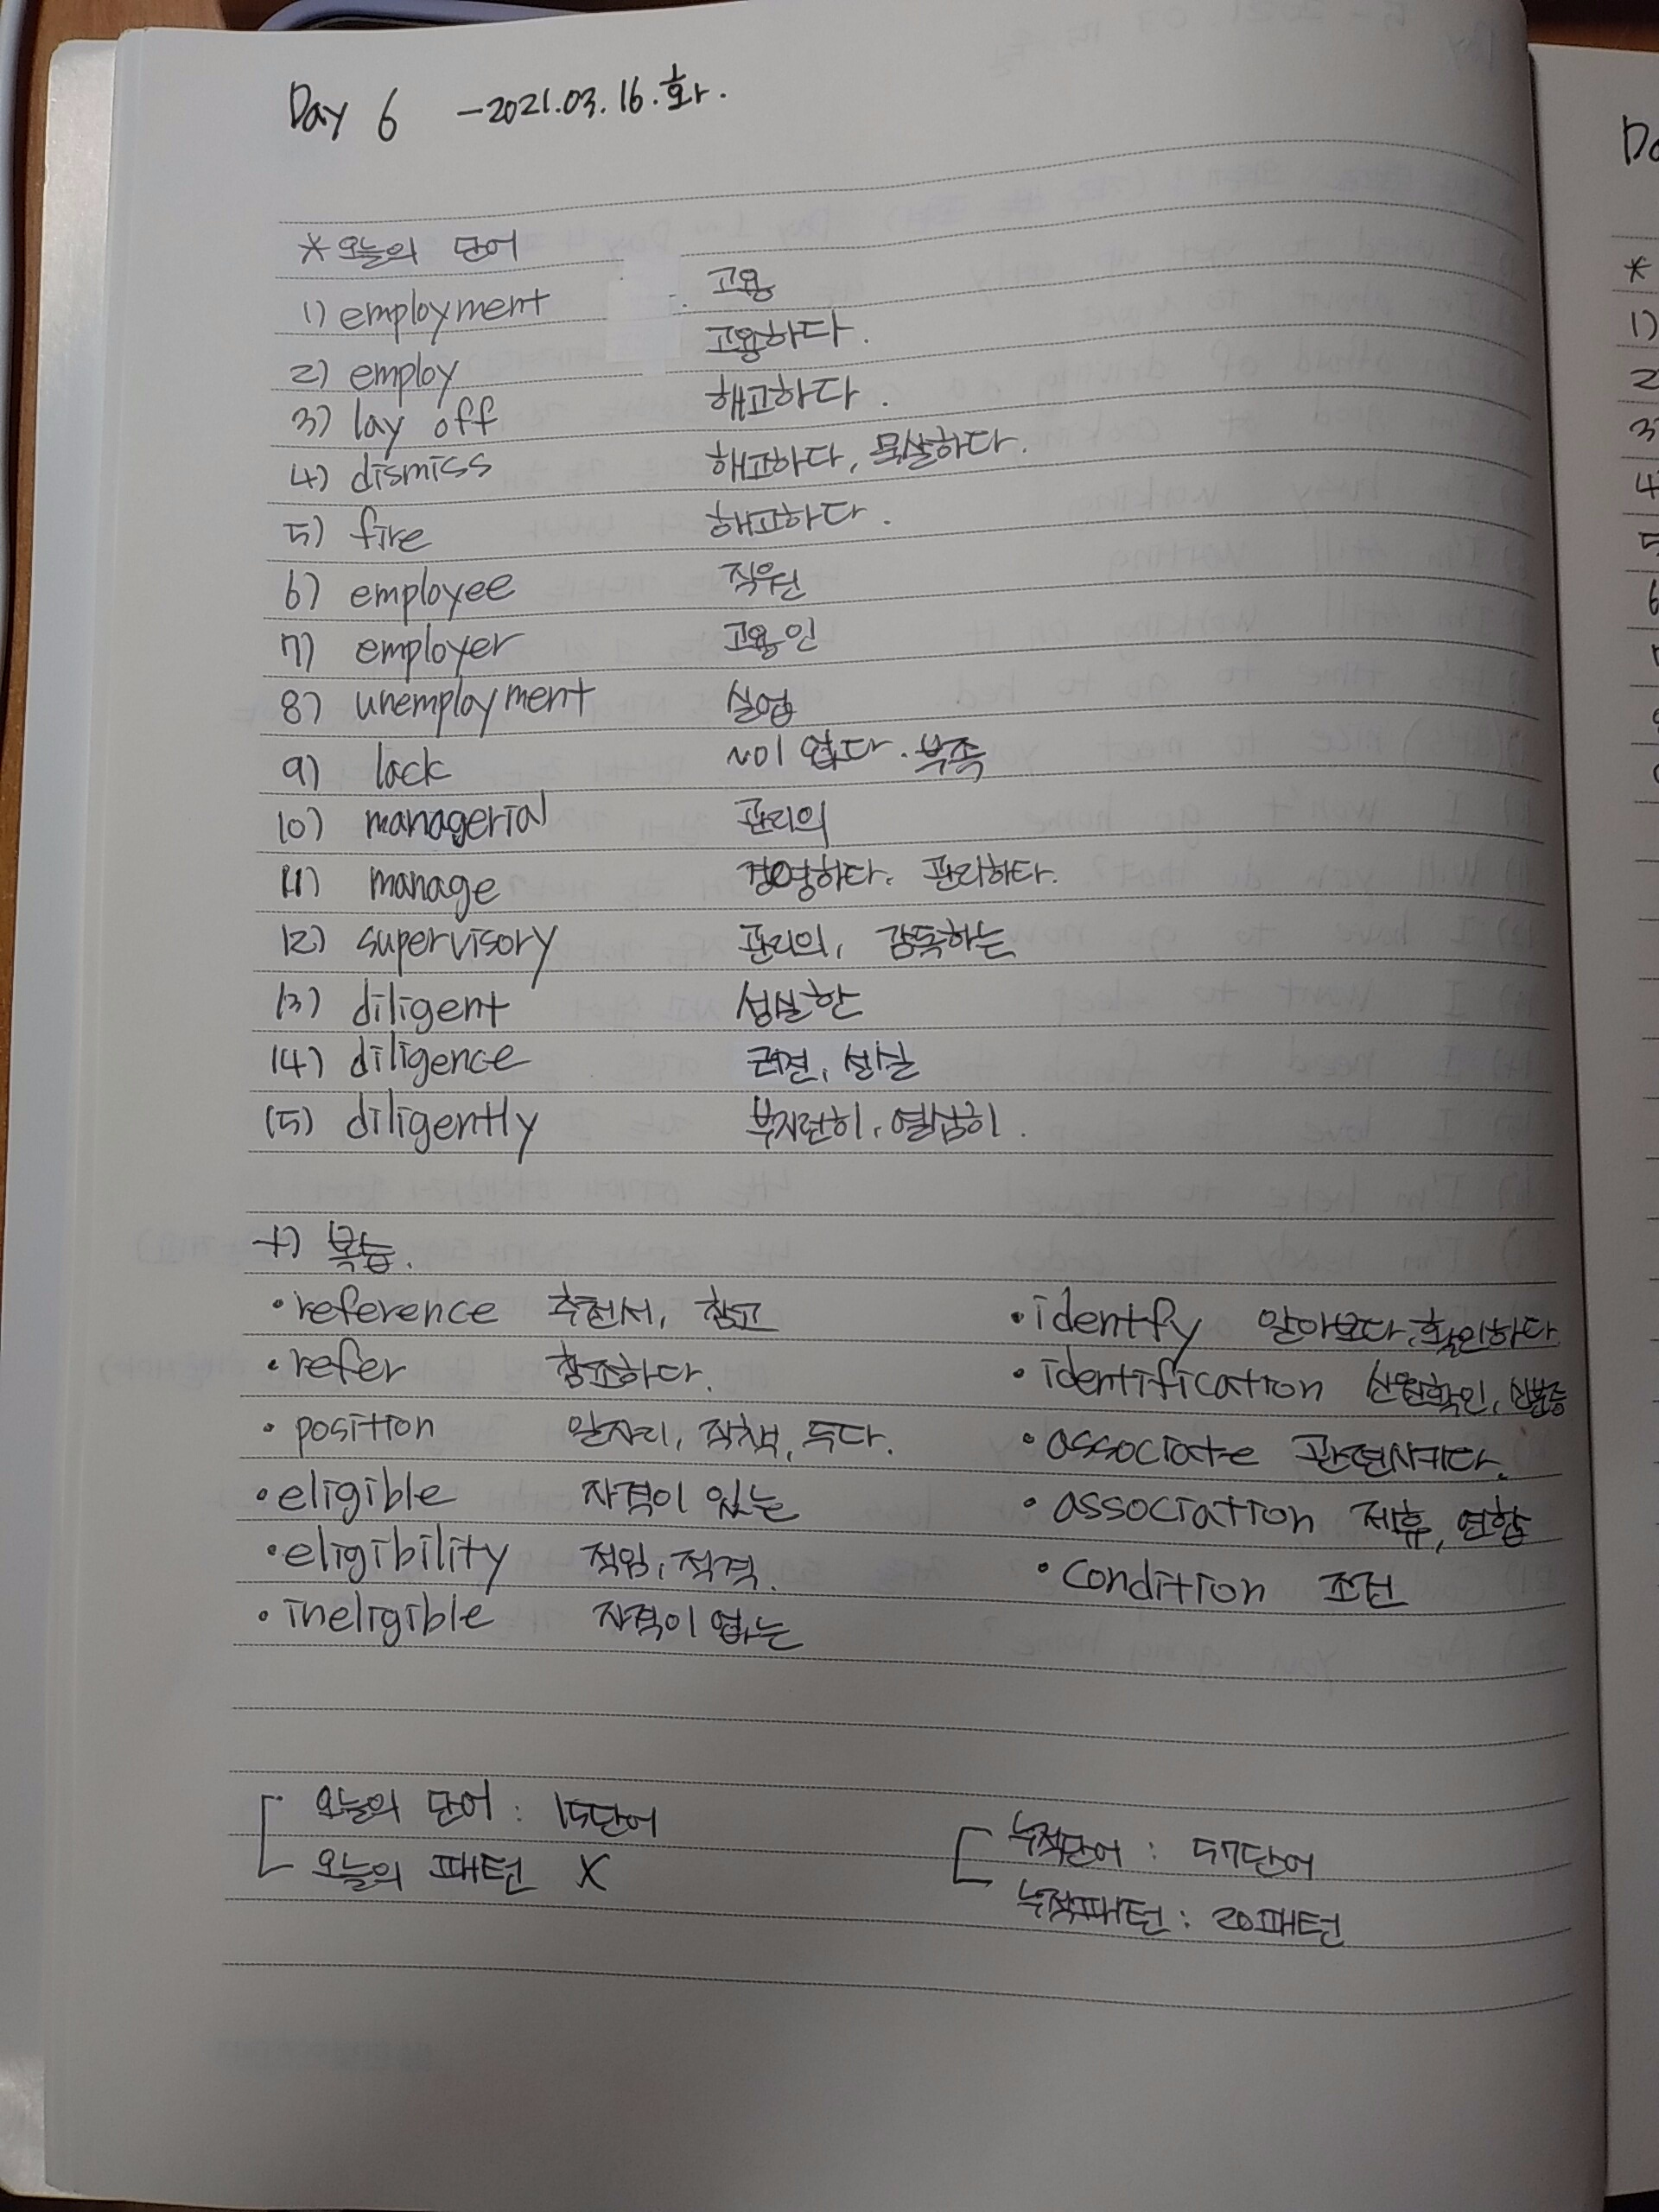 Day 6 - 2021.03.16.화.
* 오늘의 단어
1) employment 고용
2) employ 고용하다.
3) lay off 해고하다.
4) dismiss 해고하다, 묵살하다.
5) fire 해고하다.
6) employee 직원
7) employer 고용인
8) unemployment 실업
9) lack ~이 없다. 부족
10) managerial 관리의
11) manage 경영하다. 관리하다.
12) supervisory 관리의, 감독하는
13) diligent 성실한
14) diligence 근면, 성실
15) diligently 부지런히, 열심히.
+) 복습.
• reference 추천서, 참고
• refer 참조하다.
• position 일자리, 직책, 두다.
• eligible 자격이 있는
• eligibility 적임, 적격.
• ineligible 자격이 없는
• identify 알아보다, 확인하다
• identification 신원확인, 신분증
• associate 관련시키다.
• association 제휴, 연합
• condition 조건
오늘의 단어 : 15단어
오늘의 패턴 X
누적단어 : 57단어
누적패턴 : 20패턴
*
1)
2
3
4
5
6